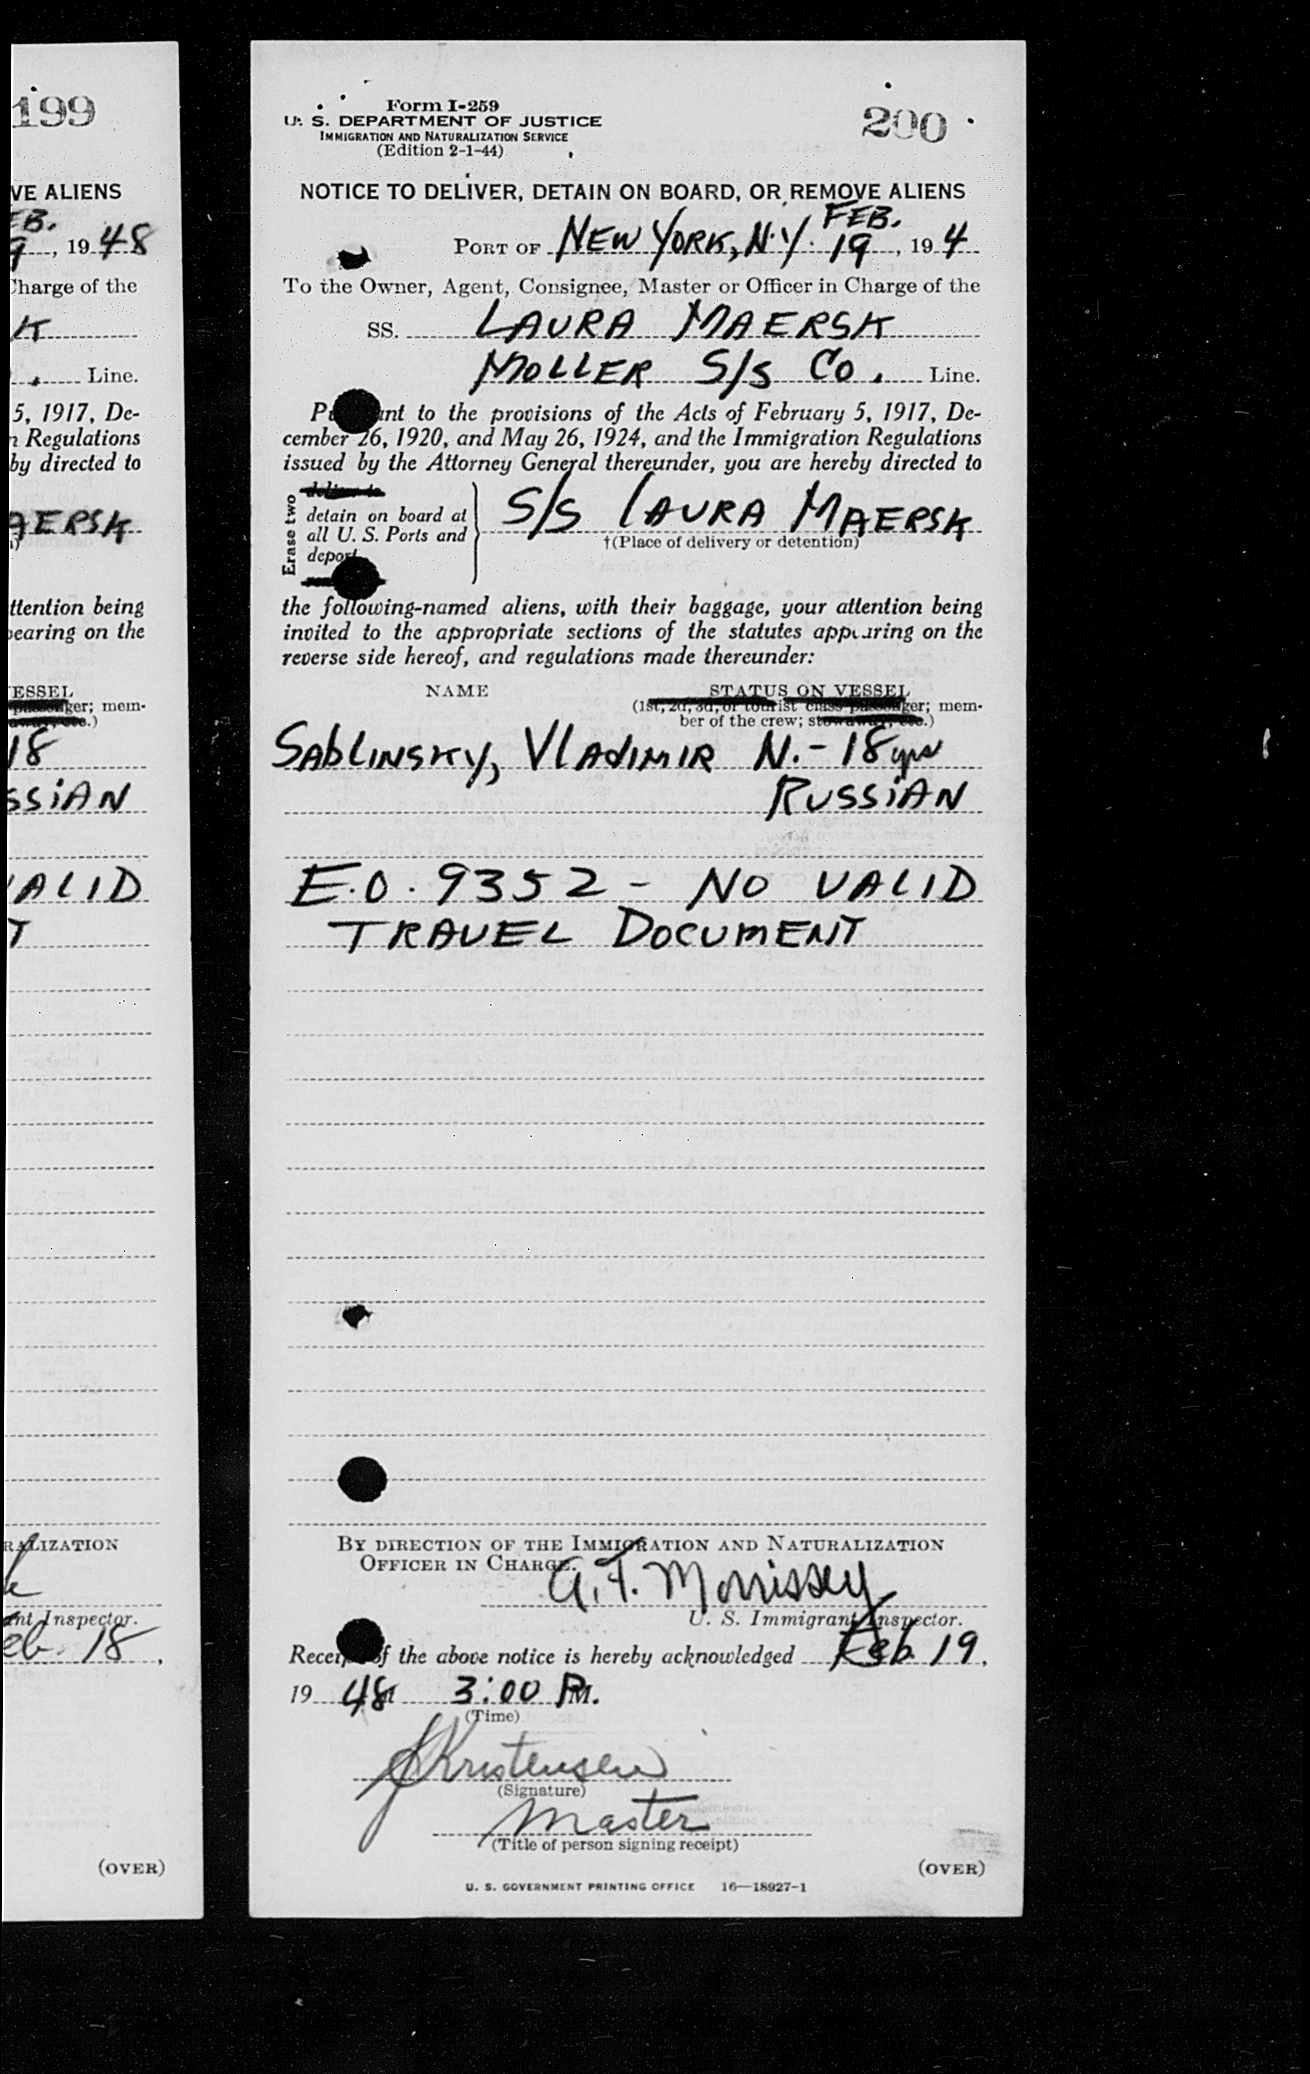 199
VE ALIENS
EB.
9, 19 48
Charge of the
K
. Line.
5, 1917, De-
n Regulations
by directed to
AERSK
ttention being
earing on the
ESSEL
ger; mem-
.)
18
SSIAN
VALID
T
RALIZATION
ant Inspector.
eb. 18,
(OVER)
Form I-259
U. S. DEPARTMENT OF JUSTICE
IMMIGRATION AND NATURALIZATION SERVICE
(Edition 2-1-44)
200
NOTICE TO DELIVER, DETAIN ON BOARD, OR REMOVE ALIENS
PORT OF NEW YORK, N.Y. FEB. 19, 19 4
To the Owner, Agent, Consignee, Master or Officer in Charge of the
SS. LAURA MAERSK
MOLLER S/S CO. Line.
Pursuant to the provisions of the Acts of February 5, 1917, De-
cember 26, 1920, and May 26, 1924, and the Immigration Regulations
issued by the Attorney General thereunder, you are hereby directed to
Erase two
deliver to
detain on board at
all U. S. Ports and
deport
S/S LAURA MAERSK
†(Place of delivery or detention)
the following-named aliens, with their baggage, your attention being
invited to the appropriate sections of the statutes appearing on the
reverse side hereof, and regulations made thereunder:
NAME STATUS ON VESSEL
(1st, 2d, 3d, or tourist class passenger; mem-
ber of the crew; stowaway, etc.)
SABLINSKY, VLADIMIR N. - 18 yrs
RUSSIAN
E.O. 9352 - NO VALID
TRAVEL DOCUMENT
BY DIRECTION OF THE IMMIGRATION AND NATURALIZATION
OFFICER IN CHARGE.
A. F. Morrissey
U. S. Immigrant Inspector.
Receipt of the above notice is hereby acknowledged Feb. 19,
19 48 at 3:00 P.M.
(Time)
J Kristensen
(Signature)
Master
(Title of person signing receipt)
(OVER)
U. S. GOVERNMENT PRINTING OFFICE 16—18927-1